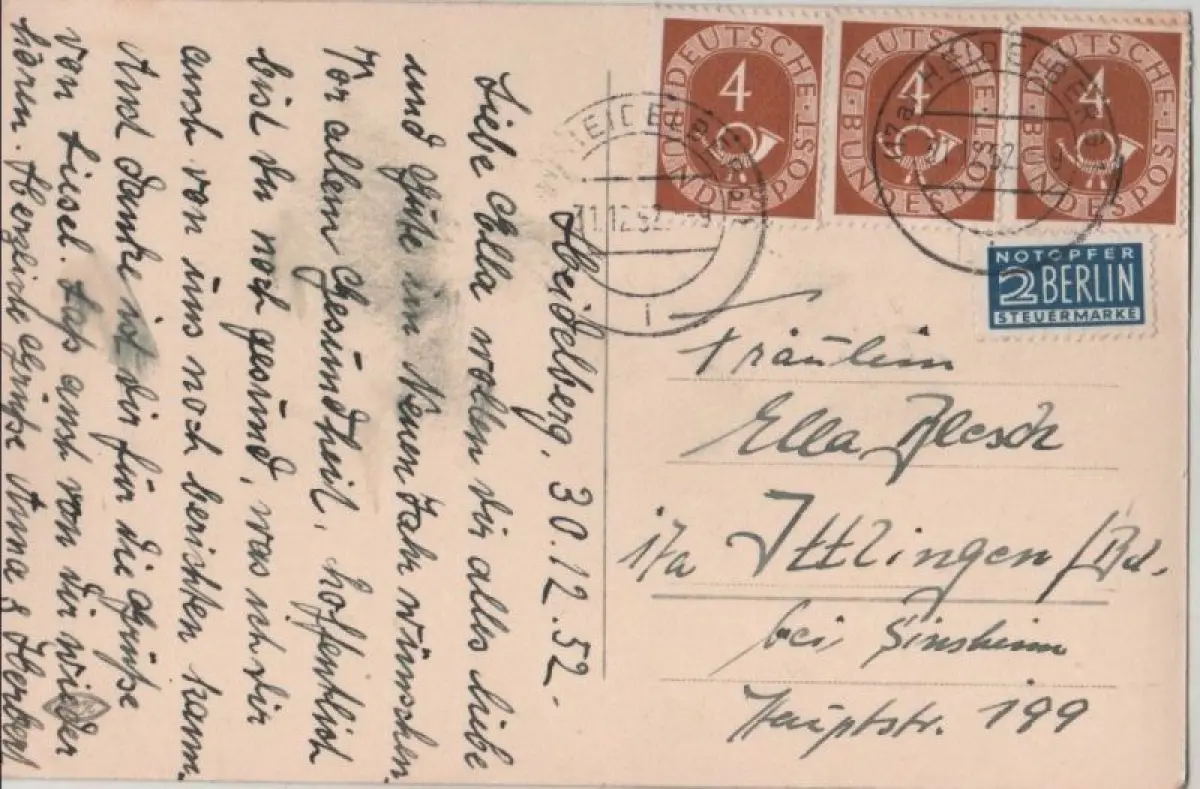 Heidelberg, 30.12.52.
Liebe Ella wollen dir alles liebe
und Gute im Neuen Jahr wünschen.
Vor allem Gesundheit, hoffentlich
bist du noch gesund, was ich dir
auch von uns noch berichten kann.
Und danke ist dir für die Grüße
von Liesel. Lass auch von dir wieder
hören. Herzliche Grüße Anna & Herbert
DEUTSCHE BUNDESPOST
4
DEUTSCHE BUNDESPOST
4
DEUTSCHE BUNDESPOST
4
HEIDELBERG
31.12.52.
i
17a HEIDELBERG
31.12.52
NOTOPFER
2 BERLIN
STEUERMARKE
Fräulein
Ella Blesch
17a Ittlingen / Bd.
bei Sinsheim
Hauptstr. 199